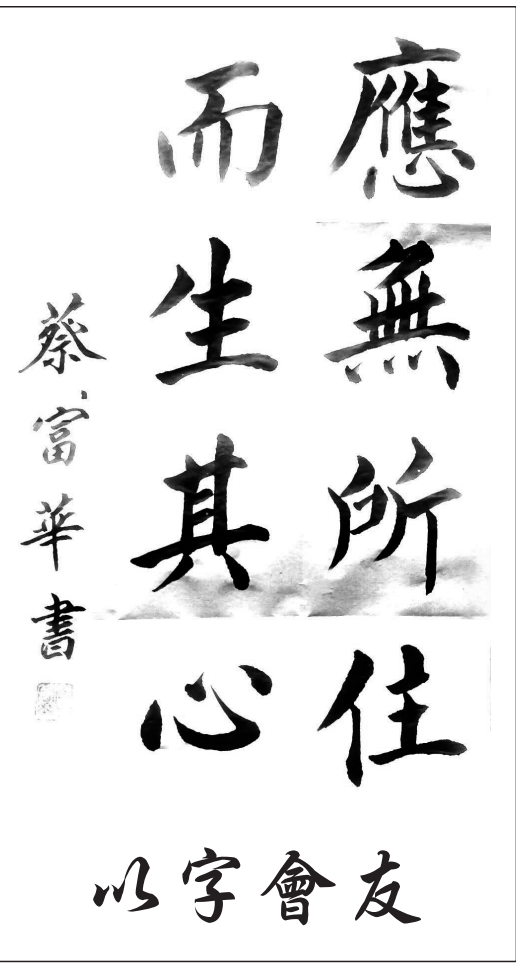 應無所住
而生其心
蔡富華書
以字會友